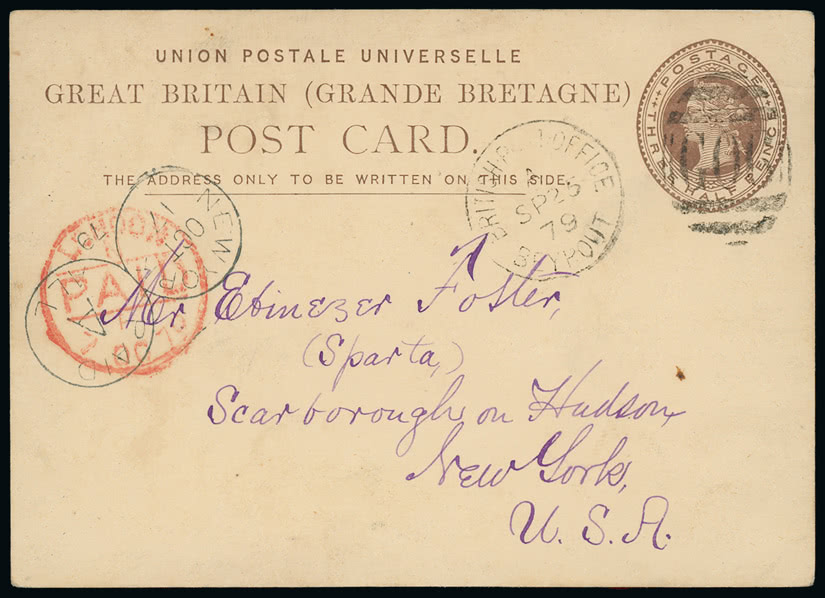 UNION POSTALE UNIVERSELLE
GREAT BRITAIN (GRANDE BRETAGNE)
POST CARD.
THE ADDRESS ONLY TO BE WRITTEN ON THIS SIDE.
POSTAGE
THREE HALF PENCE
BRITISH POST OFFICE
A
SP 25
79
BEYROUT
NEW
LONDON
PAID
Mr Ebinezer Foster,
(Sparta,)
Scarborough on Hudson
New York,
U. S. A.